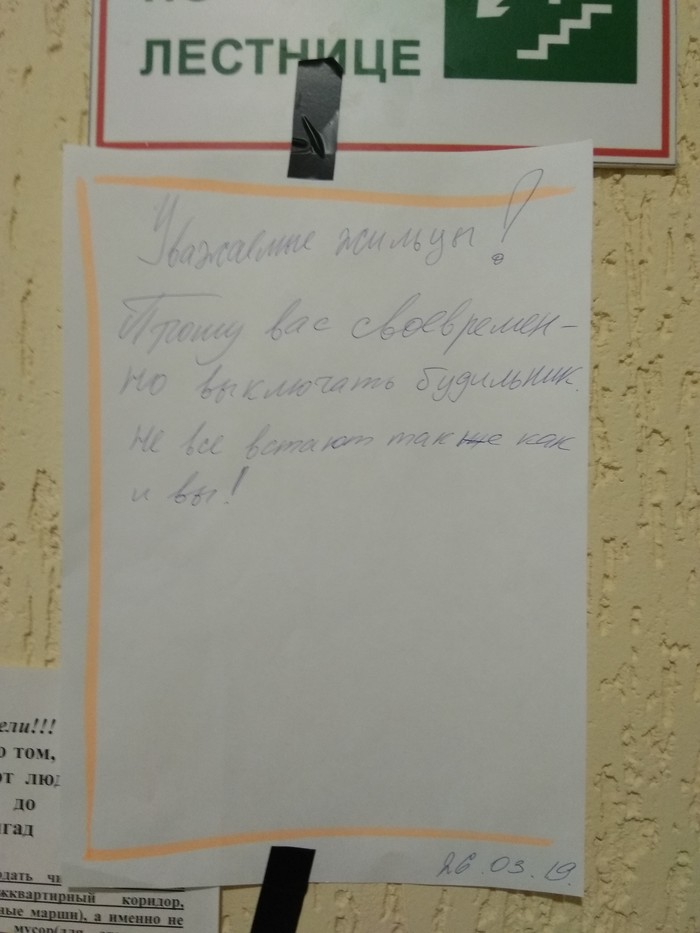 ЛЕСТНИЦЕ
Уважаемые жильцы!
Прошу вас своевремен-
но выключать будильник.
Не все встают также как
и вы!
26.03.19.
ели!!!
о том,
до
жквартирный коридор,
ные марши), а именно не